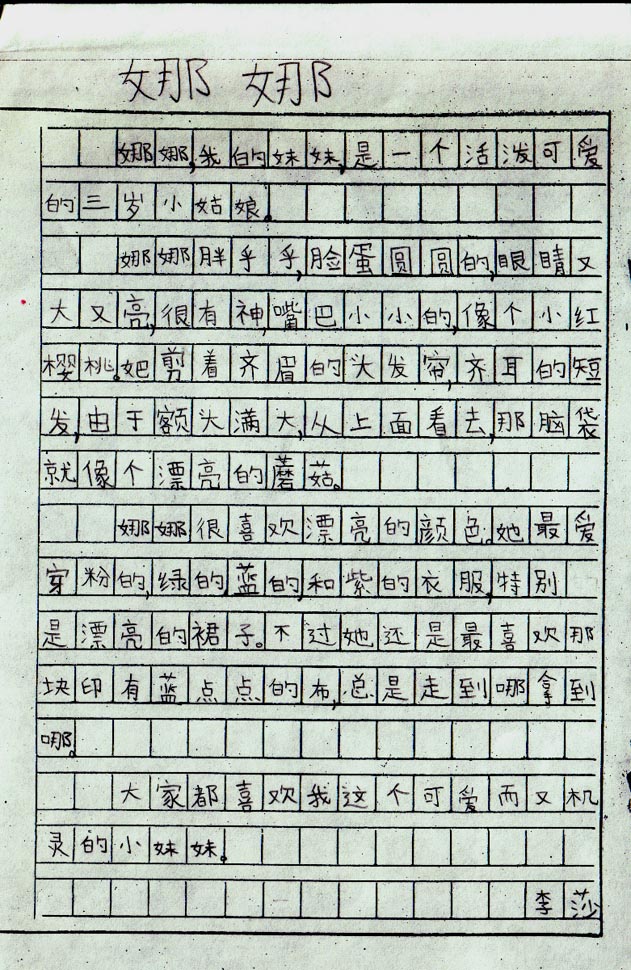 娜 娜
娜娜,我的妹妹,是一个活泼可爱
的三岁小姑娘。
娜娜胖乎乎,脸蛋圆圆的,眼睛又
大又亮,很有神,嘴巴小小的,像个小红
樱桃。她剪着齐眉的头发帘,齐耳的短
发,由于额头满大,从上面看去,那脑袋
就像个漂亮的蘑菇。
娜娜很喜欢漂亮的颜色。她最爱
穿粉的,绿的,蓝的,和紫的衣服,特别
是漂亮的裙子。不过她还是最喜欢那
块印有蓝点点的布,总是走到哪拿到
哪。
大家都喜欢我这个可爱而又机
灵的小妹妹。
李莎